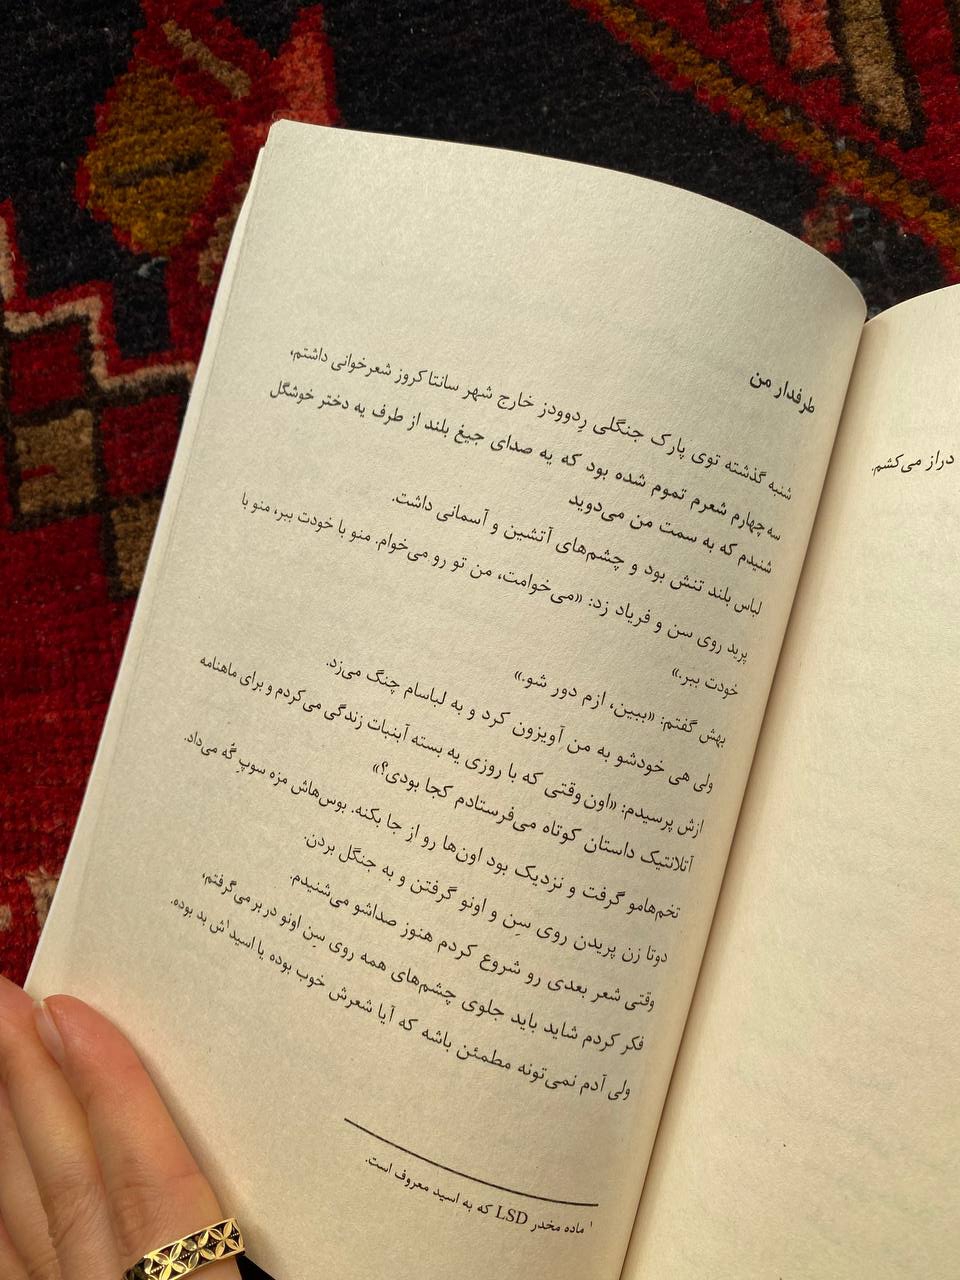 طرفدار من
شنبه گذشته توی پارک جنگلی رِدوودز خارج شهر سانتاکروز شعرخوانی داشتم،
سه‌چهارم شعرم تموم شده بود که یه صدای جیغ بلند از طرف یه دختر خوشگل
شنیدم که به سمت من می‌دوید
لباس بلند تنش بود و چشم‌های آتشین و آسمانی داشت.
پرید روی سن و فریاد زد: «می‌خوامت، من تو رو می‌خوام. منو با خودت ببر، منو با
خودت ببر.»
بهش گفتم: «ببین، ازم دور شو.»
ولی هی خودشو به من آویزون کرد و به لباسام چنگ می‌زد.
ازش پرسیدم: «اون وقتی که با روزی یه بسته آبنبات زندگی می‌کردم و برای ماهنامه
آتلانتیک داستان کوتاه می‌فرستادم کجا بودی؟»
تخم‌هامو گرفت و نزدیک بود اون‌ها رو از جا بکنه. بوس‌هاش مزه سوپِ گُه می‌داد.
دوتا زن پریدن روی سِن و اونو گرفتن و به جنگل بردن.
وقتی شعر بعدی رو شروع کردم هنوز صداشو می‌شنیدم.
فکر کردم شاید باید جلوی چشم‌های همه روی سِن اونو در بر می‌گرفتم،
ولی آدم نمی‌تونه مطمئن باشه که آیا شعرش خوب بوده یا اسید۱ش بد بوده.
۱ ماده مخدر LSD که به اسید معروف است.
دراز می‌کشم.